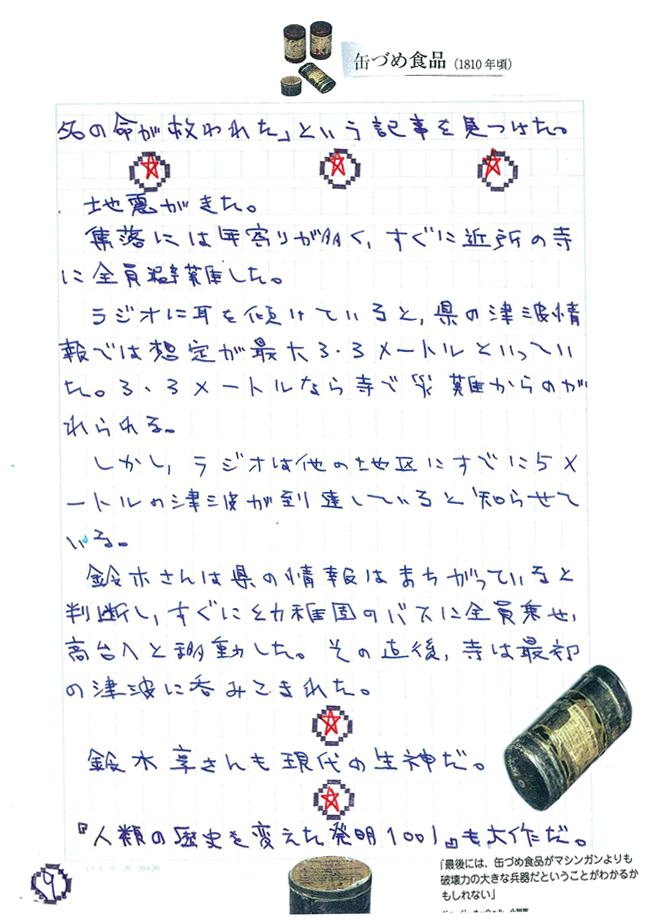 缶づめ食品(1810年頃)
名の命が救われた」という記事を見つけた。
地震がきた。
集落には年寄りが多く、すぐに近所の寺
に全員避難した。
ラジオに耳を傾けていると、県の津波情
報では想定が最大3・3メートルといってい
た。3・3メートルなら寺で災難からのが
れられる。
しかし、ラジオは他の地区にすでに5メ
ートルの津波が到達していると知らせて
いる。
鈴木さんは県の情報はまちがっていると
判断し、すぐに幼稚園のバスに全員乗せ、
高台へと移動した。その直後、寺は最初
の津波に呑みこまれた。
鈴木享さんも現代の生神だ。
『人類の歴史を変えた発明1001』も大作だ。
9
20×20
「最後には、缶づめ食品がマシンガンよりも
破壊力の大きな兵器だということがわかるか
もしれない」